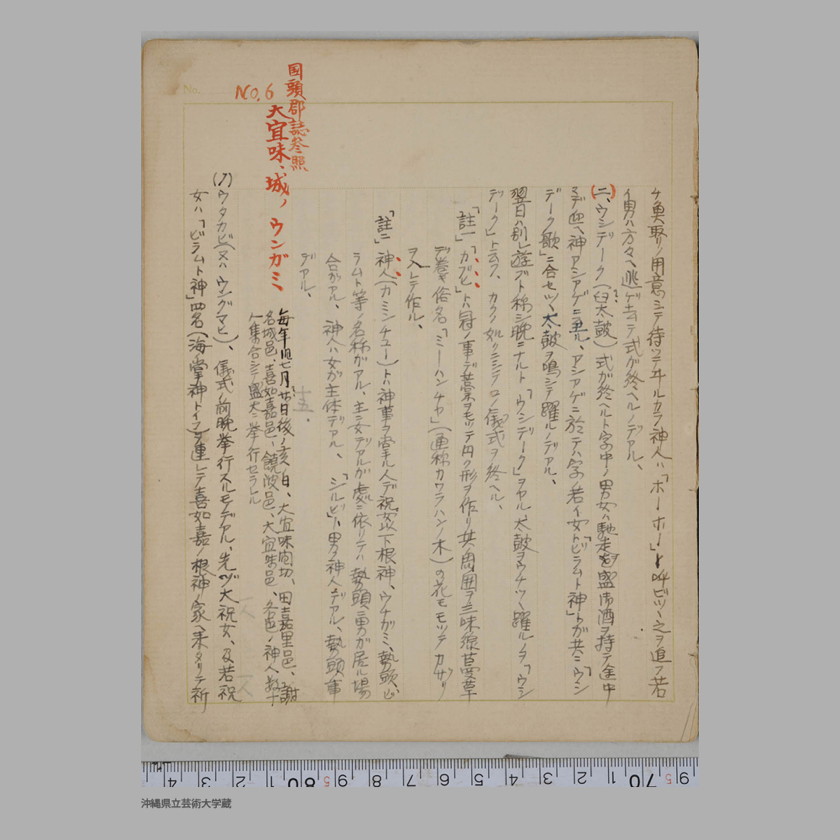 ケ魚取リノ用意シテ待ツテヰルカラ神人ハ「ホーホー」ト呼ビツヽ之ヲ追フ若
イ男ハ方々ヘ逃ゲ 式ガ終ヘルノデアル、
(二、ウシデーク(臼太鼓)式ガ終ヘルト字中ノ男女ハ馳走ヲ盛 酒ヲ持テ途中
ミデ迎ヘ神アシアゲニ 、アシアゲニ於テハ字ノ若イ女ト「ビラムト神」トガ共ニ「ウシ
デーク歌」ニ合セツヽ太鼓ヲ鳴シテ躍ルノデアル、
翌日ハ別レ遊ブト称シ晩ニナルト「ウシデーク」ヲヤル太鼓ヲウチツヽ躍ルノヲ「ウシ
デーク」ト云フ、カクノ如クシテ 儀式ヲ終ヘル、
「註一」「カブヒ」トハ冠ノ事デ藁ヲモツテ円ク形ヲ作リ其ノ周囲ヲ三味線蔓草
デ巻キ俗名「ミーハンチヤ」(更称カワラハンノ木)ノ花ヲモツテカザリ
ヲ入レテ作ル、
「註二」神人(カミンチュー)トハ神事ヲ掌ル人デ祝女以下根神、ウチガミ、勢頭、ビ
ラムト等ノ名称ガアル、主ニ女デアルガ処ニ依リテハ勢頭ニ男ガ居ル場
合ガアル、神人ハ女ガ主体デアル、「シルビ」ハ男ノ神人デアル、勢頭 事
デアル、
国頭郡誌参照
No.6
大宜味、城ノウンガミ
毎年旧七月廿日後ノ亥ノ日、大宜味間切、田嘉里邑、謝
名城邑、喜如嘉邑、饒波邑、大宜味邑、各邑ノ神人数十
人集合シテ盛大ニ挙行セラレル
十五、
(ア)ウタカビ(又ハウングマヒ)、儀式ノ前晩挙行スルモノデアル、先ヅ大祝女、及若祝
女ハ「ビラムト神」四名(海掌神トイフ)ヲ連レテ喜如嘉ノ根神ノ家ヘ来タリテ祈
沖縄県立芸術大学蔵